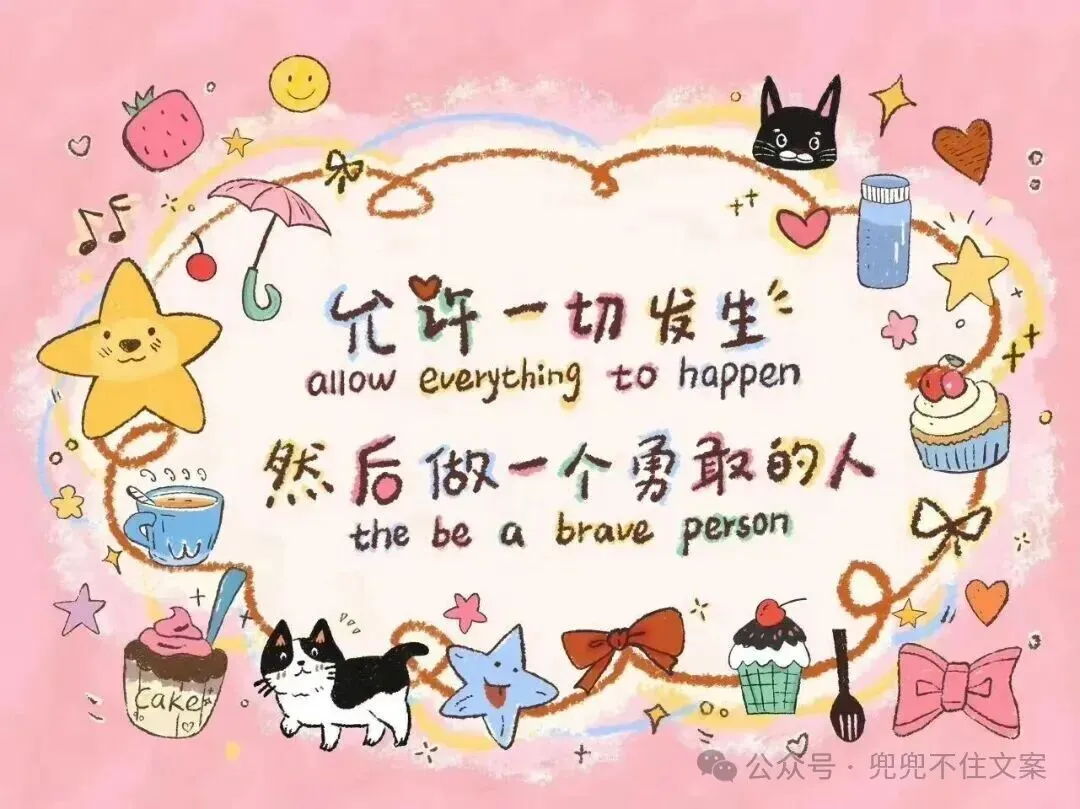 允许一切发生
allow everything to happen
然后做一个勇敢的人
the be a brave person
cake
公众号·兜兜不住文案